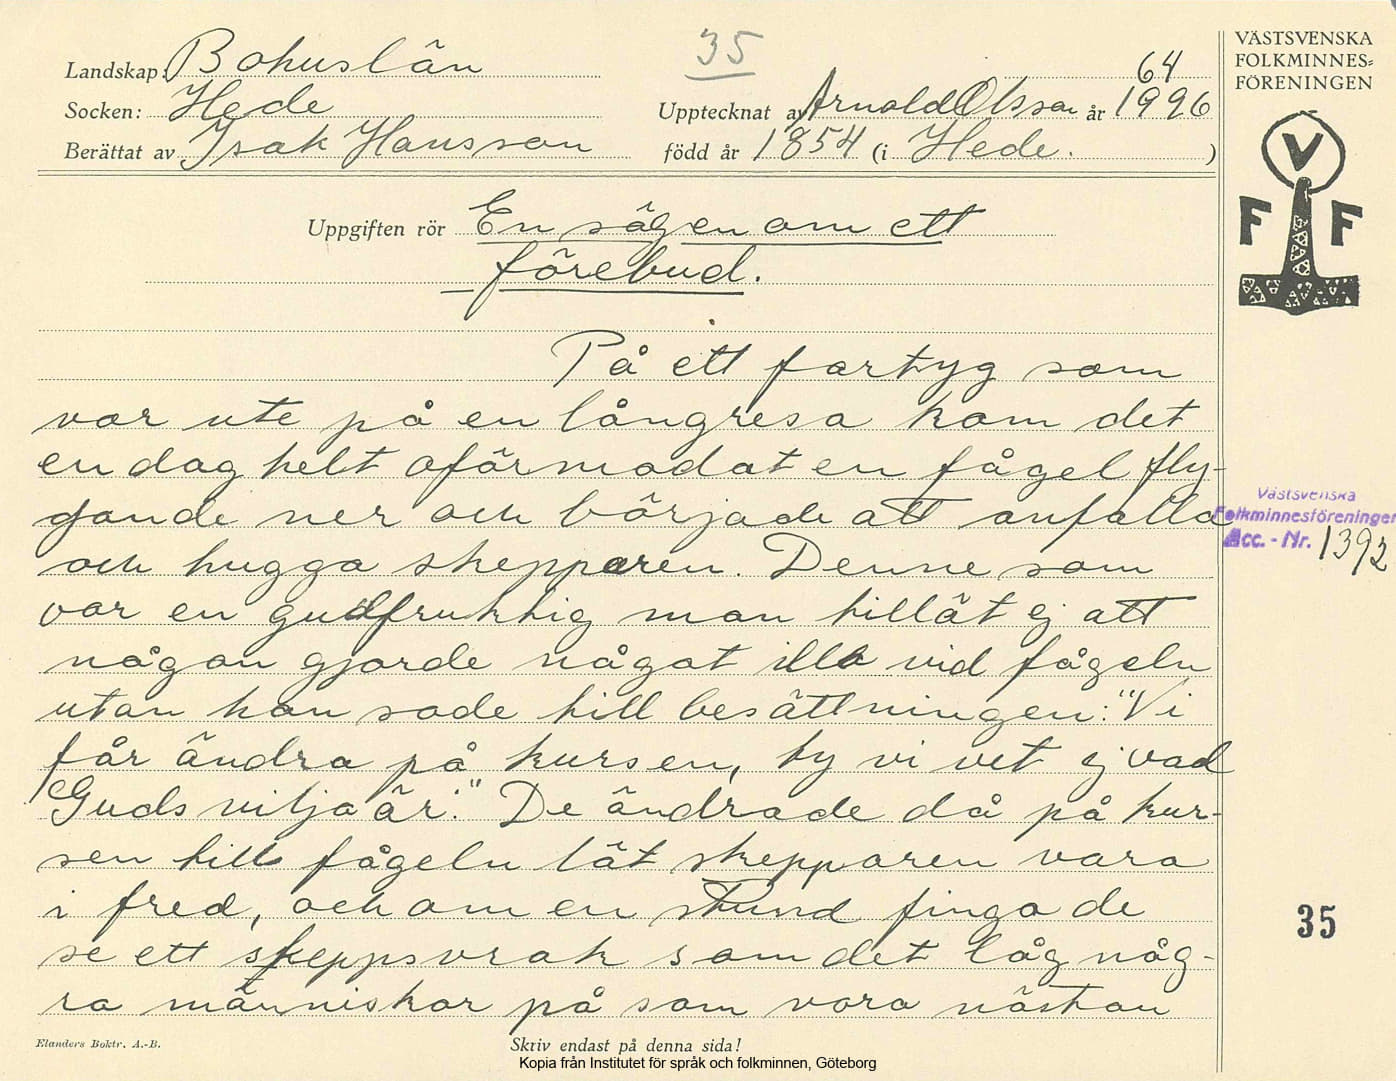 35
Landskap: Bohuslän
64
Socken: Hede
Upptecknat av Arnold Olsson år 1926
Berättat av Isak Hansson
född år 1854 (i Hede.)
Uppgiften rör En sägen om ett
förebud.
På ett fartyg som
var ute på en långresa kom det
en dag helt oförmodat en fågel fly-
gande ner och började att anfalla
och hugga skepparen. Denne som
var en gudfruktig man tillät ej att
någon gjorde något illa vid fågeln
utan han sade till besättningen: "Vi
får ändra på kursen, ty vi vet ej vad
Guds vilja är." De ändrade då på kur-
sen till fågeln lät skepparen vara
i fred, och om en stund fingo de
se ett skeppsvrak som det låg någ-
ra människor på som voro nästan
Elanders Boktr. A.-B.
Skriv endast på denna sida!
Kopia från Institutet för språk och folkminnen, Göteborg
VÄSTSVENSKA
FOLKMINNES-
FÖRENINGEN
V
F F
Västsvenska
Folkminnesföreningen
Acc. - Nr. 1392
35